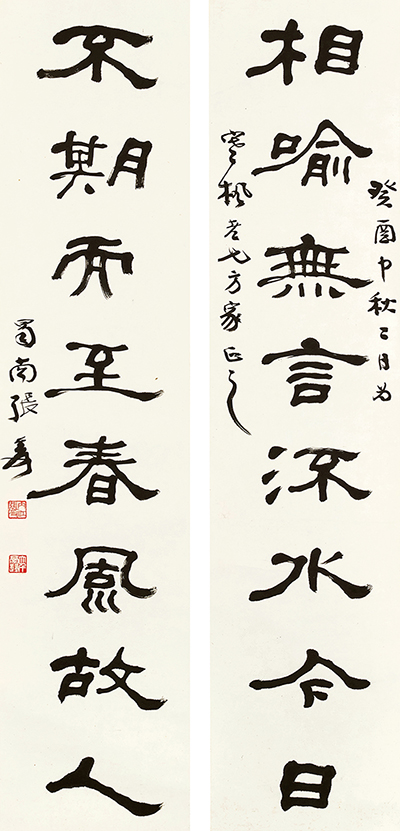 癸酉中秋二日為
相喻無言流水今日
寒楓老也方家正之
不期而至春風故人
蜀南張爰